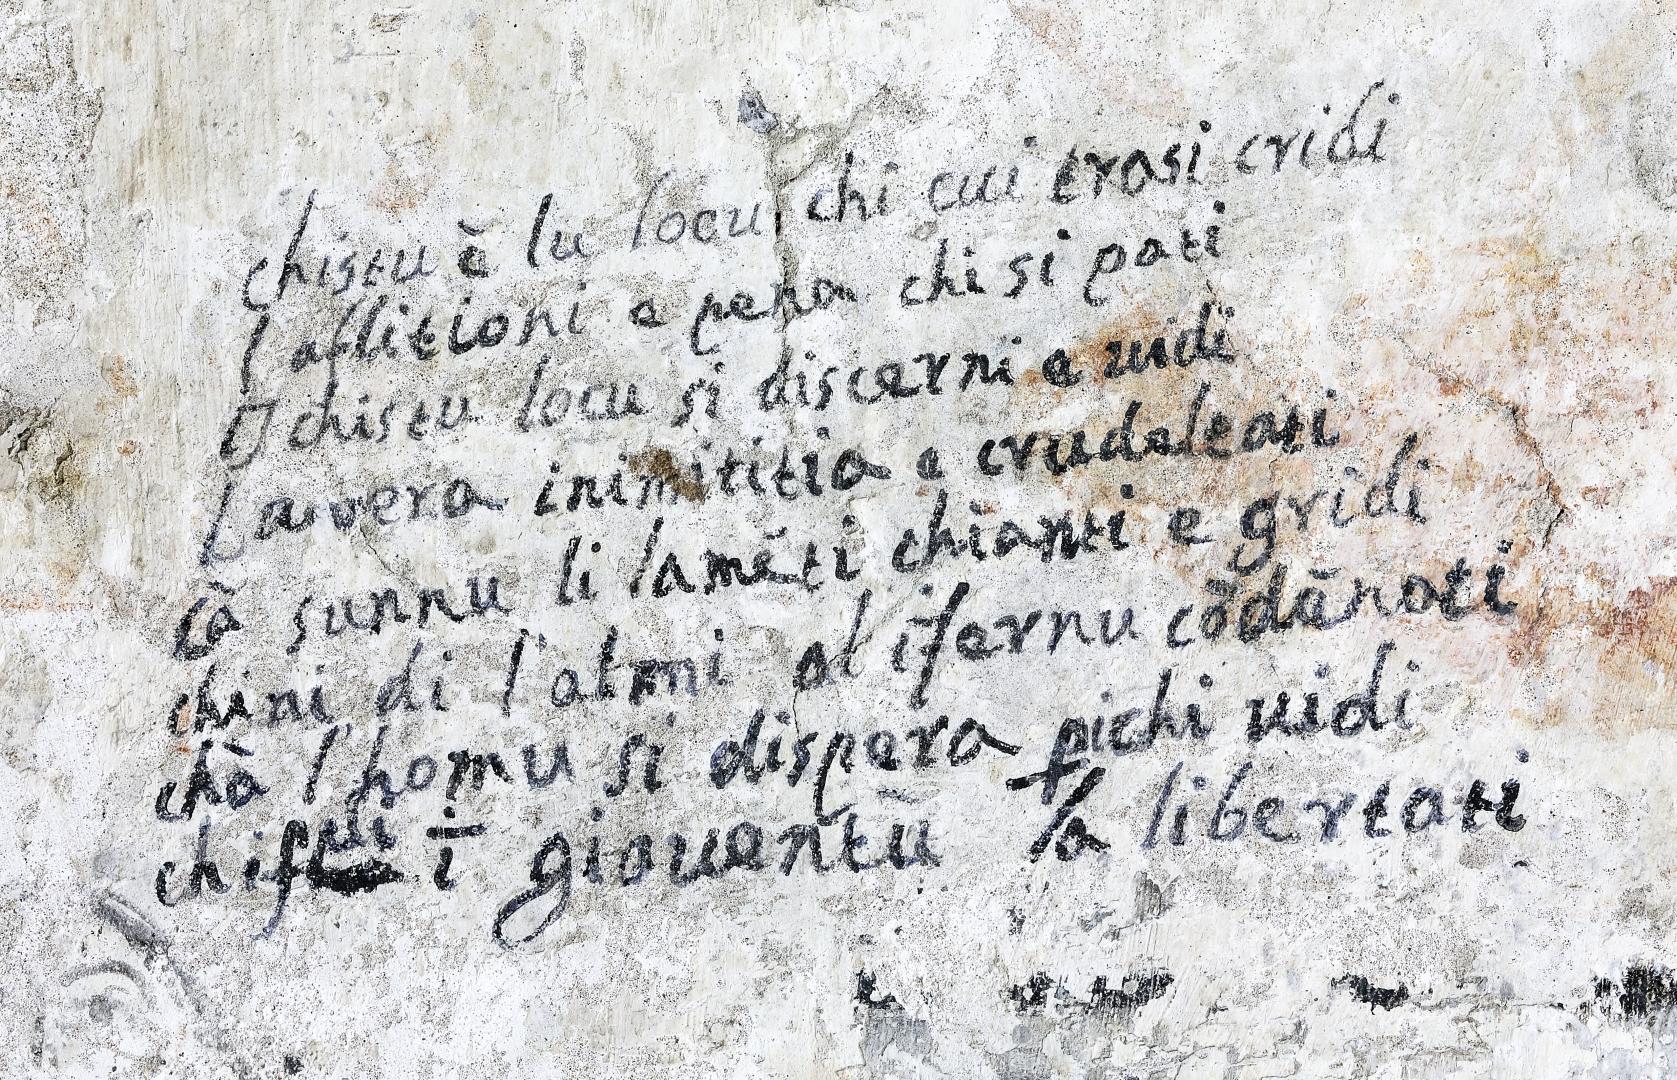 chistu è lu locu chi cui trasi cridi
l'afflitioni e pena chi si pati
O chistu locu si discerni e vidi
l'avvera inimititia e crudeleati
cà sunnu li lamēti chianti e gridi
chini di l'almi al ifernu cōdānati
chà l'homu si dispera pichi vidi
ī gioventū la libertati